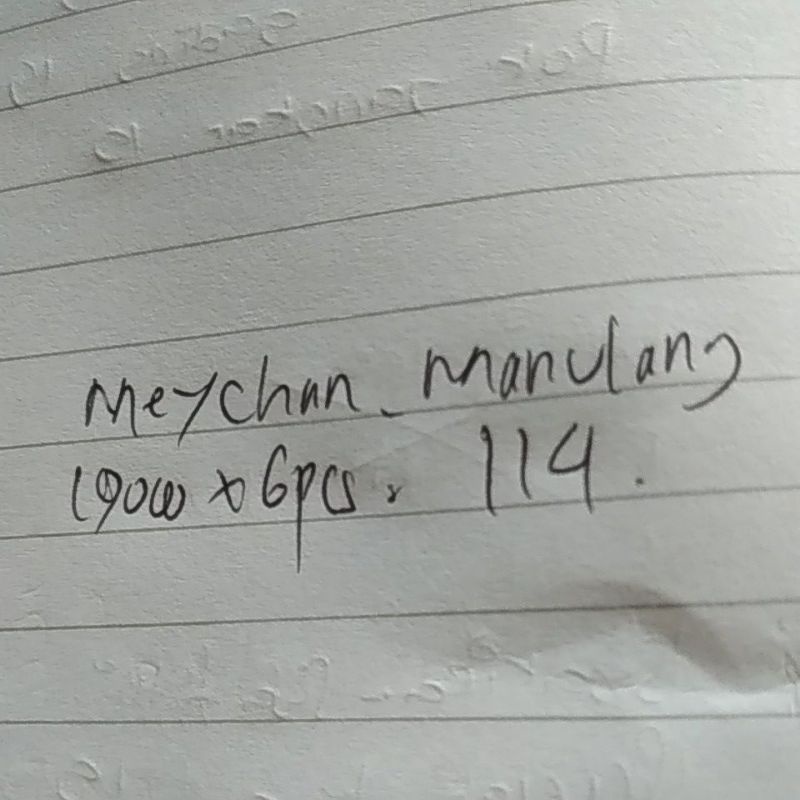 Meychan_Manulang
19000 x 6pcs. 114.